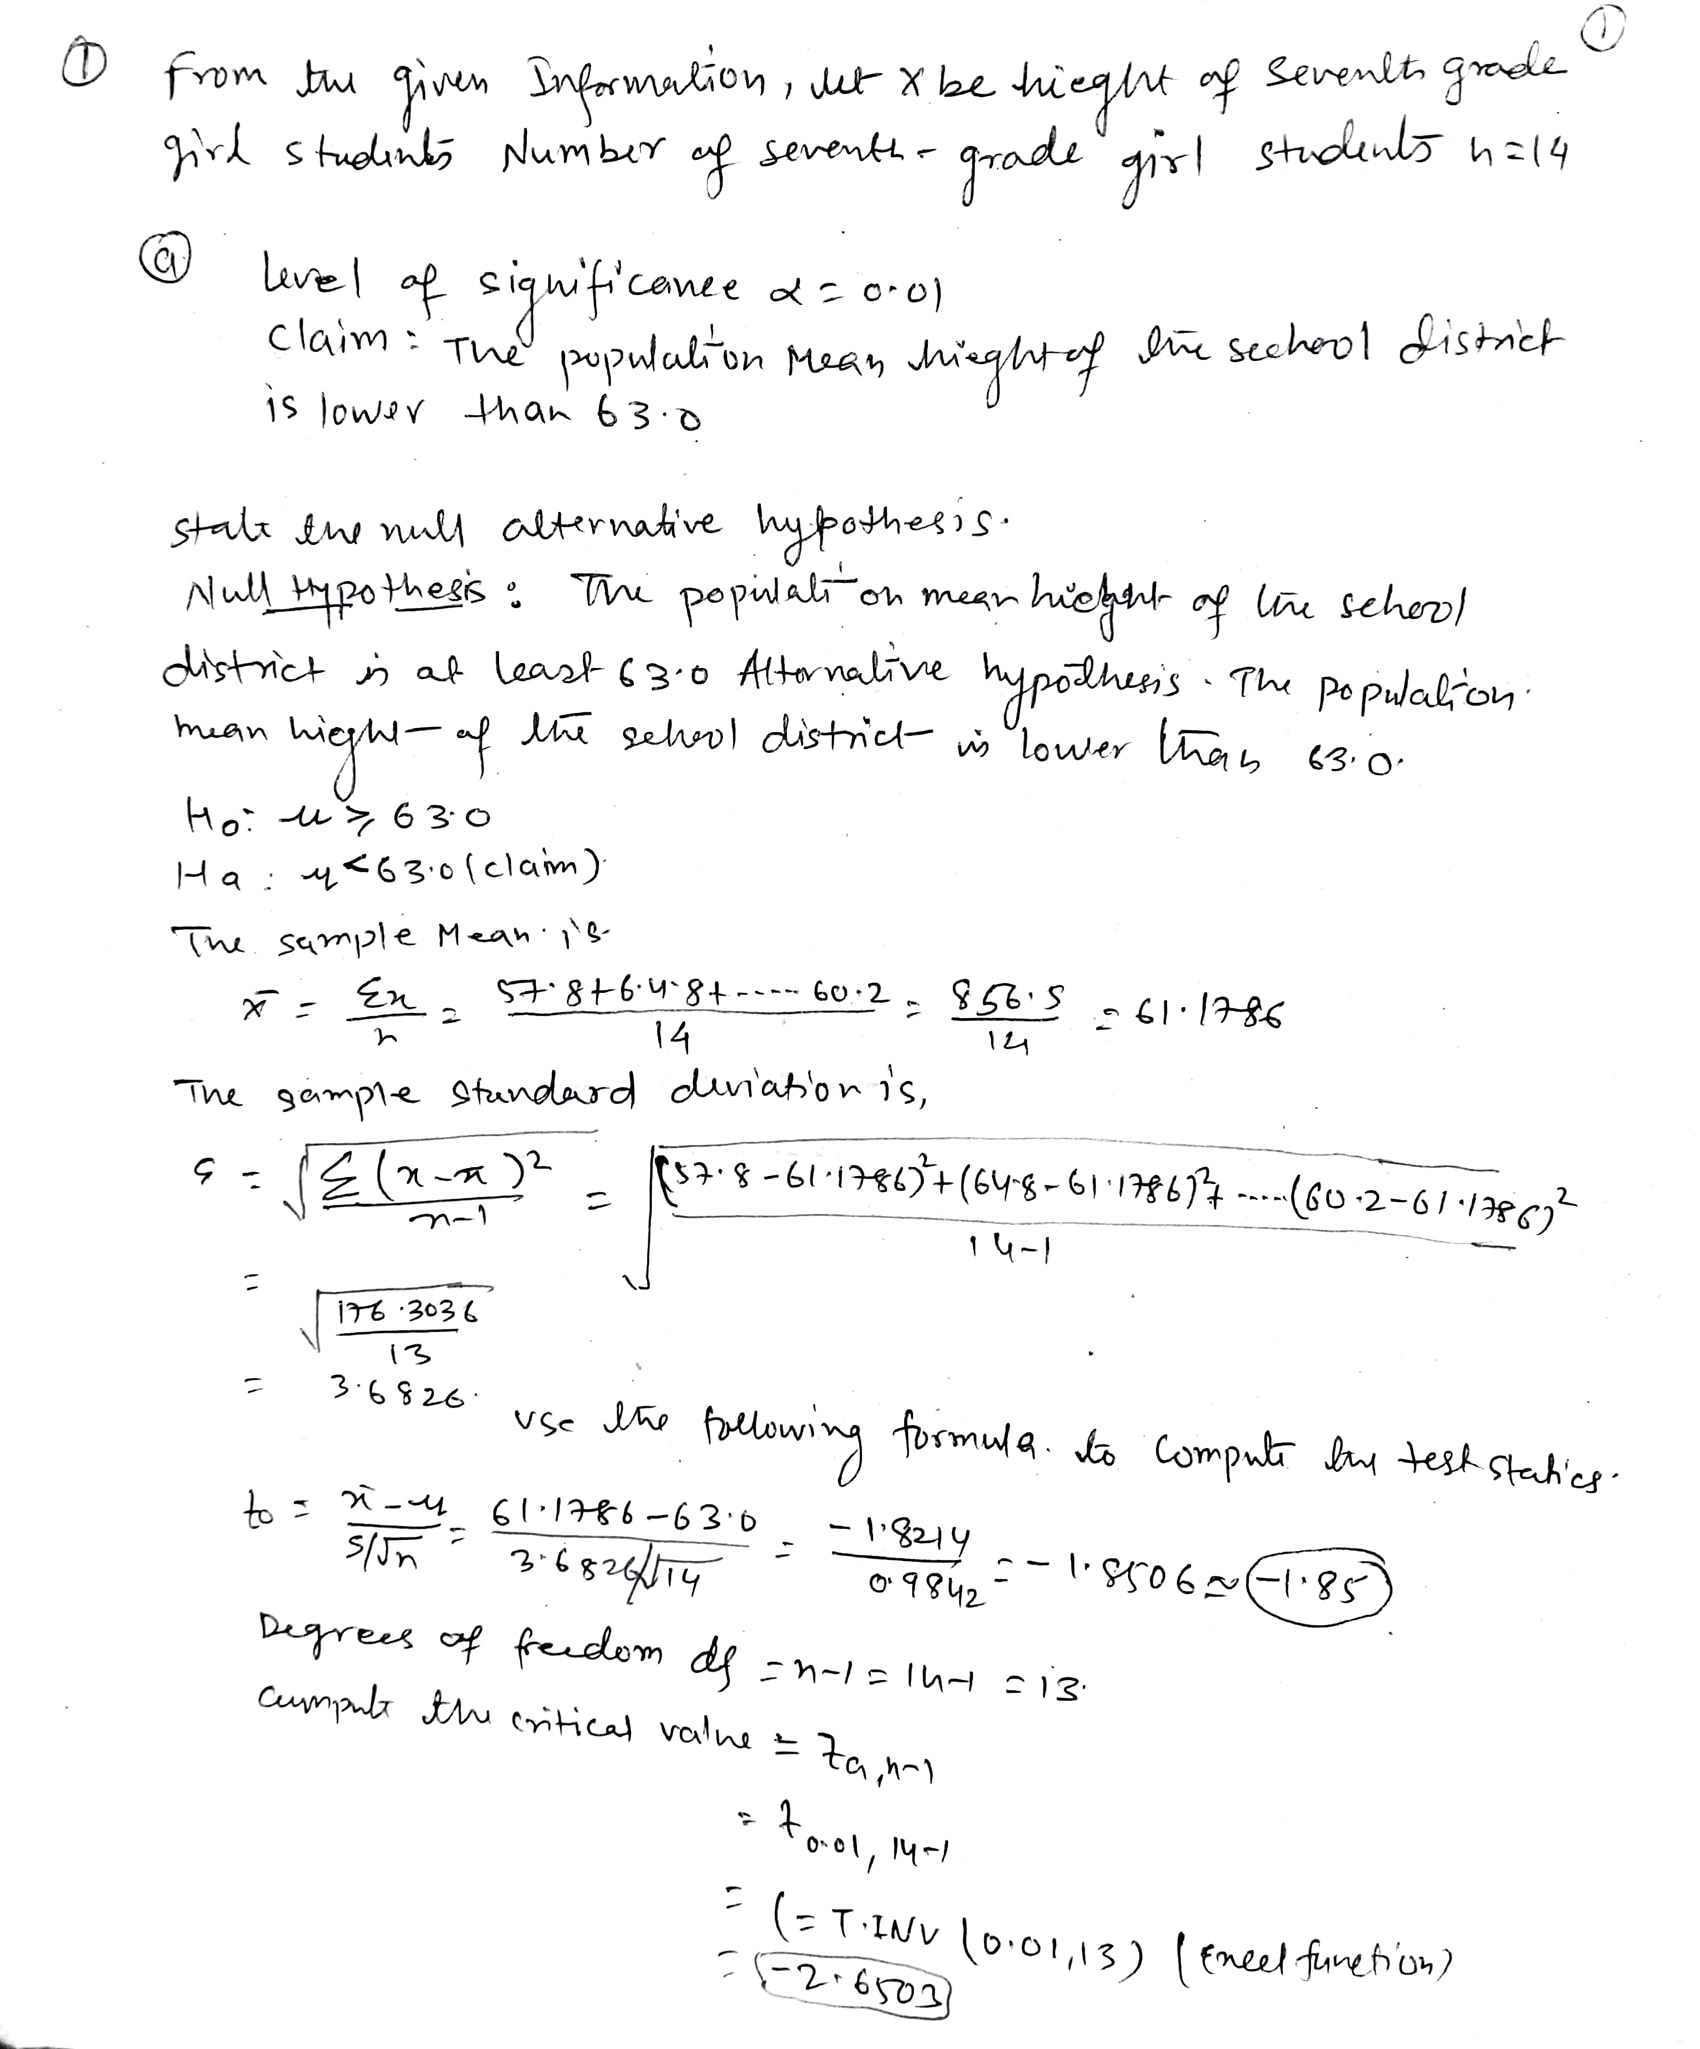 ①
① From the given Information, let x be hieght of Seventh grade
girl students Number of seventh-grade girl students n=14
ⓐ level of significance α = 0.01
Claim: The population Mean hieght of the seehool district
is lower than 63.0
State the null alternative hypothesis.
Null Hypothesis: The populati on mean hieght of the school
district is at least 63.0 Alternative hypothesis. The population
mean hieght of the school district is lower than 63.0.
Ho: μ ≥ 63.0
Ha: μ < 63.0 (claim)
The sample Mean is
x̄ = Σx/n = 57.8+6.4.8+.....60.2/14 = 856.5/14 = 61.1786
The sample standard deviation is,
s = √Σ(x-x̄)²/n-1 = √(57.8-61.1786)²+(64.8-61.1786)²+.....(60.2-61.1786)²/14-1
= √176.3036/13
= 3.6826.
use the following formula to Compute the test statics.
to = x̄-μ/s/√n = 61.1786-63.0/3.6826/√14 = -1.8214/0.9842 = -1.8506 ≈ -1.85
Degrees of freedom df = n-1 = 14-1 = 13.
Cumpute the critical value = tα,n-1
= t0.01, 14-1
= (= T.INV (0.01,13) (Excel function)
= -2.6503